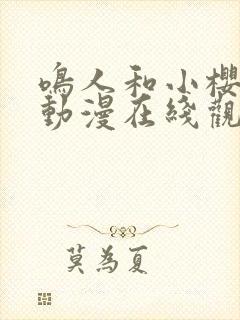 鳴人和小櫻
動漫在綫觀
莫為夏